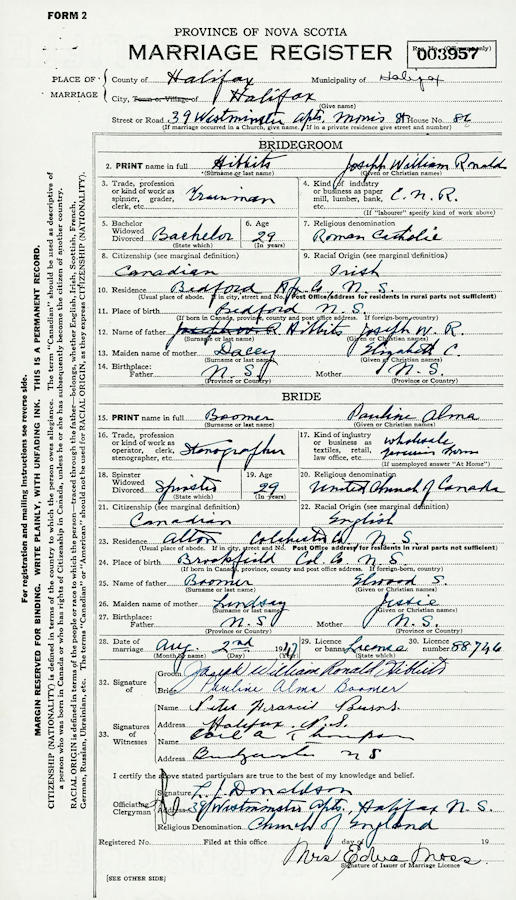 FORM 2
PROVINCE OF NOVA SCOTIA
MARRIAGE REGISTER
Reg. No. (Office use only)
003957
PLACE OF MARRIAGE
County of Halifax Municipality of Halifax
City, Town or Village of Halifax
(Give name)
Street or Road 39 Westminster Apts. Morris St House No. 86
(If marriage occurred in a Church, give name. If in a private residence give street and number)
BRIDEGROOM
2. PRINT name in full Hibbits Joseph William Ronald
(Surname or last name) (Given or Christian names)
3. Trade, profession or kind of work as spinner, grader, clerk, etc. Trainman
4. Kind of industry or business as paper mill, lumber, bank, etc. C.N.R.
(If "labourer" specify kind of work above)
5. Bachelor Widowed Divorced Bachelor (State which)
6. Age 29 (In years)
7. Religious denomination Roman Catholic
8. Citizenship (see marginal definition) Canadian
9. Racial Origin (see marginal definition) Irish
10. Residence Bedford Hfx. Co. N.S.
(Usual place of abode. If in city, street and No. Post Office address for residents in rural parts not sufficient)
11. Place of birth Bedford N.S.
(If born in Canada, province, county and post office address. If foreign-born, country)
12. Name of father Hibbits Joseph W. R.
(Surname or last name) (Given or Christian names)
13. Maiden name of mother Dacey Elizabeth C.
(Surname or last name) (Given or Christian names)
14. Birthplace: Father N.S. Mother N.S.
(Province or Country) (Province or Country)
BRIDE
15. PRINT name in full Boomer Pauline Alma
(Surname or last name) (Given or Christian names)
16. Trade, profession or kind of work as operator, clerk, stenographer, etc. Stenographer
17. Kind of industry or business as textiles, retail, law office, etc. wholesale
(If unemployed answer "At Home")
18. Spinster Widowed Divorced Spinster (State which)
19. Age 29 (In years)
20. Religious denomination United Church of Canada
21. Citizenship (see marginal definition) Canadian
22. Racial Origin (see marginal definition) English
23. Residence Alton Colchester Co. N.S.
(Usual place of abode. If in city, street and No. Post Office address for residents in rural parts not sufficient)
24. Place of birth Brookfield Col. Co. N.S.
(If born in Canada, province, county and post office address. If foreign-born, country)
25. Name of father Boomer Elwood S.
(Surname or last name) (Given or Christian names)
26. Maiden name of mother Lindsay Jessie
(Surname or last name) (Given or Christian names)
27. Birthplace: Father N.S. Mother N.S.
(Province or Country) (Province or Country)
28. Date of marriage Aug. 2nd 19
(Month by name) (Day) (Year)
29. License or banns License (State which)
30. License number 58746
32. Signature of
Groom Joseph William Ronald Hibbits
Bride Pauline Alma Boomer
33. Signatures of Witnesses
Name Francis Burns.
Address Halifax, N.S.
Name Thompson
Address Bridgewater N S
I certify the above stated particulars are to the best of my knowledge and belief.
Officiating Clergyman
Signature L. J. Donaldson
Address 39 Westminster Apts. Halifax N. S.
Religious Denomination Church of England
Registered No. Filed at this office day of 19
Mrs Edna Moss.
Signature of Issuer of Marriage Licence
[SEE OTHER SIDE]
For registration and mailing instructions see reverse side.
MARGIN RESERVED FOR BINDING. WRITE PLAINLY, WITH UNFADING INK. THIS IS A PERMANENT RECORD.
CITIZENSHIP (NATIONALITY) is defined in terms of the country to which the person owes allegiance. The term "Canadian" should be used as descriptive of
a person who was born in Canada or who has rights of Citizenship in Canada, unless he or she has subsequently become the citizen of another country.
RACIAL ORIGIN is defined in terms of the people or race to which the person—traced through the father—belongs, whether English, Irish, Scottish, French,
German, Russian, Ukrainian, etc. The terms "Canadian" or "American" should not be used for RACIAL ORIGIN, as they express CITIZENSHIP (NATIONALITY).